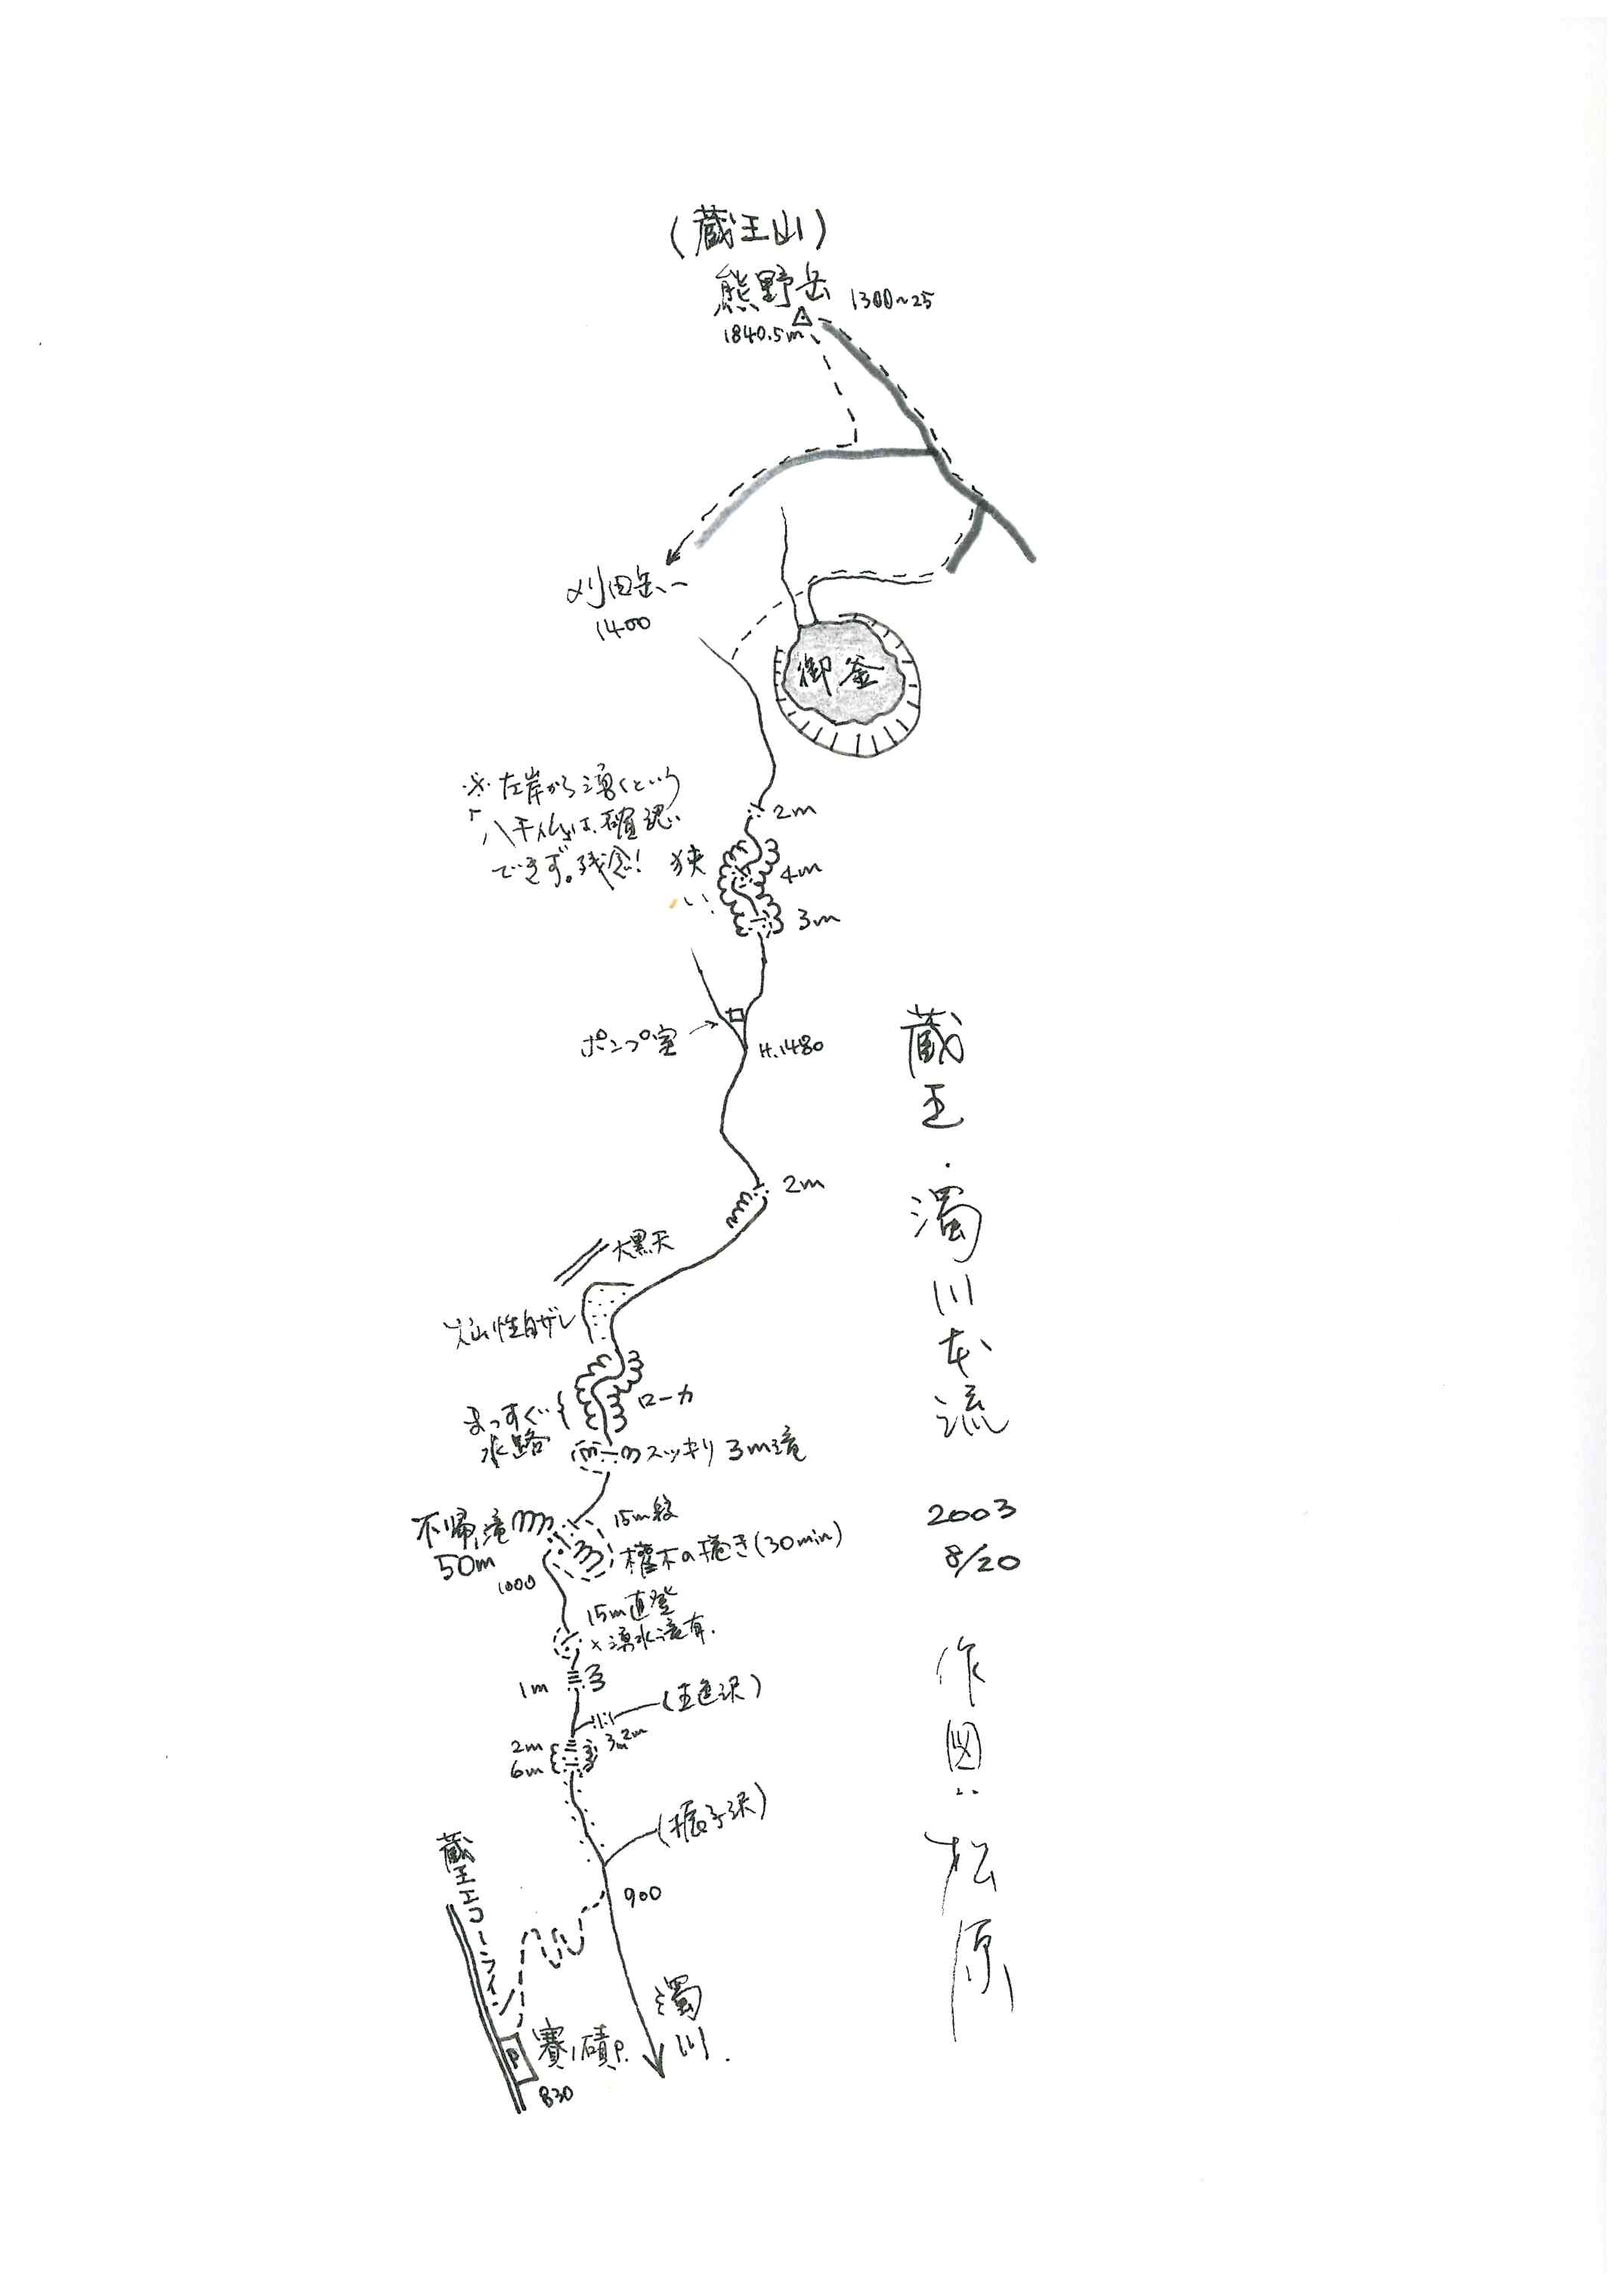 (蔵王山)
熊野岳
1300~25
1840.5m
刈田岳へ
1400
御釜
2m
※左岸から湧くという
「八千仏」は、確認
できず。残念!
狭
い
4m
3m
ポンプ室
H.1480
2m
大黒天
火山性白ザレ
ローカ
まっすぐ
水路
スッキリ 3m滝
不帰ノ滝
50m
15m級
灌木の捲き(30min)
1000
15m直登
×湧水滝有.
1m
(五色沢)
3m 2m
2m
6m
(振子沢)
900
蔵王エコーライン
濁川.
P
賽ノ磧P.
830
蔵王・濁川本流
2003
8/20
作図:松原